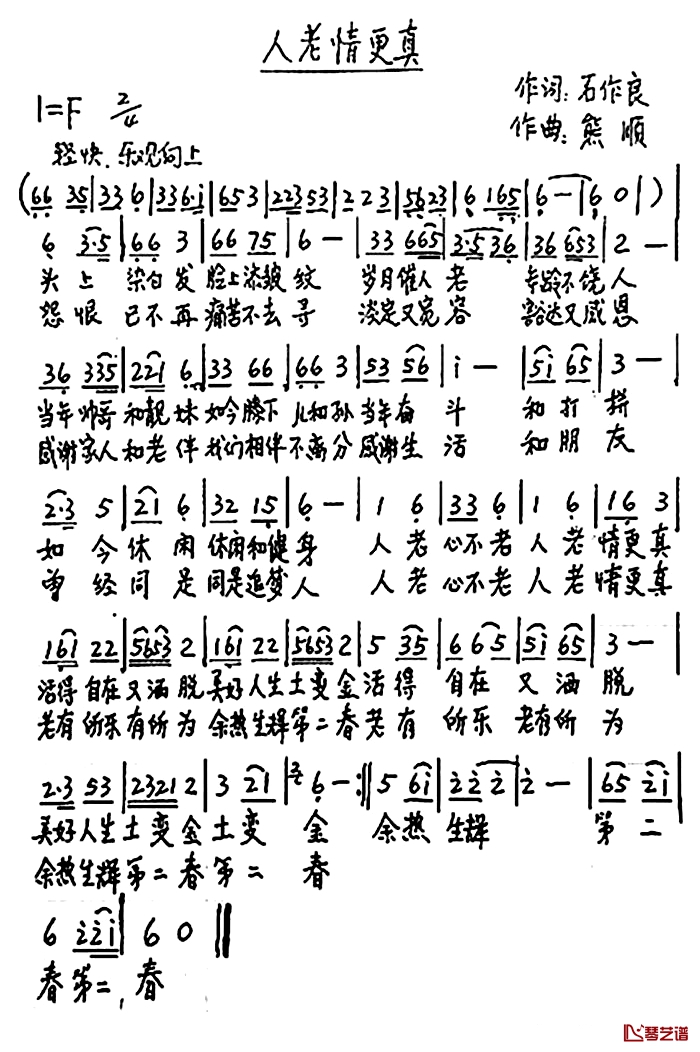 人老情更真
作词:石作良
1=F 2/4
作曲:熊顺
轻快、乐观向上
(66 35|33 6|336·i|653|22353|223|5623|6 165|6—|6 0|)
6 3·5|66 3|66 75|6 —|33 665|3·5 36|36 653|2 —|
头上 染白发 脸上添皱纹 岁月催人老 年龄不饶人
怨恨 已不再 痛苦不去寻 淡定又宽容 豁达又感恩
36 335|221 6|33 66|66 3|53 56|i —|5i 65|3 —|
当年帅哥和靓妹 如今膝下儿和孙 当年奋斗 和打拼
感谢家人和老伴 我们相伴不离分 感谢生活 和朋友
2·3 5|21 6|32 15|6 —|1 6|33 6|1 6|16 3|
如今休闲休闲和健身 人老心不老 人老情更真
曾经同是同是追梦人 人老心不老 人老情更真
161 22|5653 2|161 22|5653 2|5 35|6 65|5i 65|3 —|
活得自在又洒脱 美好人生土变金 活得自在又洒脱
老有所乐有所为 余热生辉第二春 老有所乐老有所为
2·3 53|2321 2|3 21|2/4 6 —:||5 6i|i2 2 2|2 —|65 2i|
美好人生土变金土变金 余热生辉 第二
余热生辉第二春第二春
6 22i|6 0||
春第二,春
琴艺谱